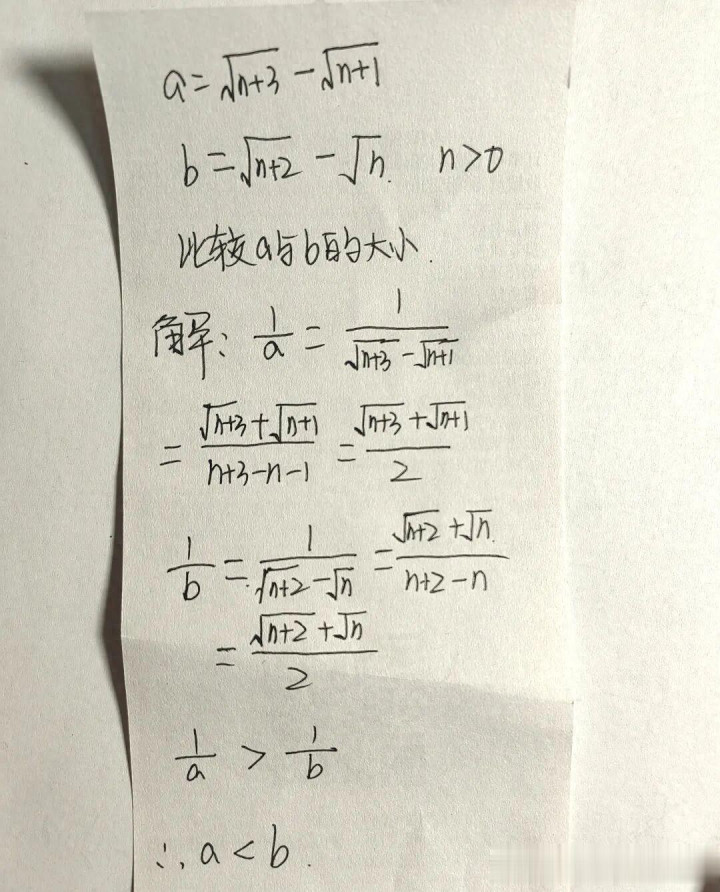 a=√(n+3) -√(n+1)
b=√(n+2) -√n. n>0
比较a与b的大小.
解: 1/a = 1/(√(n+3) -√(n+1))
= (√(n+3)+√(n+1))/(n+3-n-1) = (√(n+3)+√(n+1))/2
1/b = 1/(√(n+2) -√n) = (√(n+2)+√n)/(n+2-n)
= (√(n+2)+√n)/2
1/a > 1/b
∴a<b.